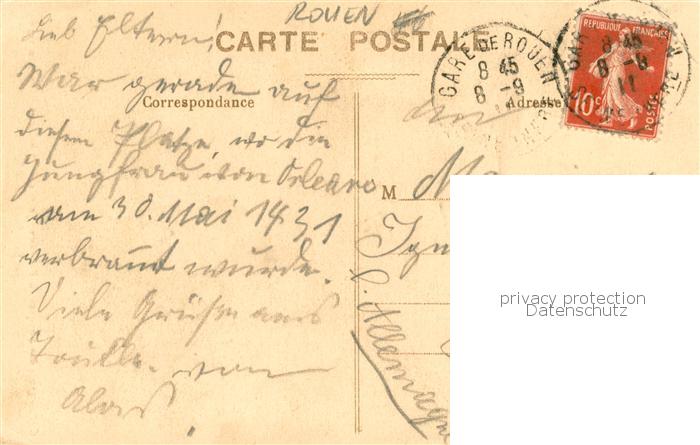 ROUEN
Lieb Eltern!
CARTE POSTALE
GARE DE ROUEN
8 45
8 -9
REPUBLIQUE FRANÇAISE
8 45
8 -9
11
10c
POSTES
Correspondance
Adresse
War gerade auf
diesem Platze, wo die
Jungfrau von Orleans
am 30. Mai 1431
verbrannt wurde.
Viele Grüße aus
von
Alois.
an
M
l'Allemagne
privacy protection
Datenschutz